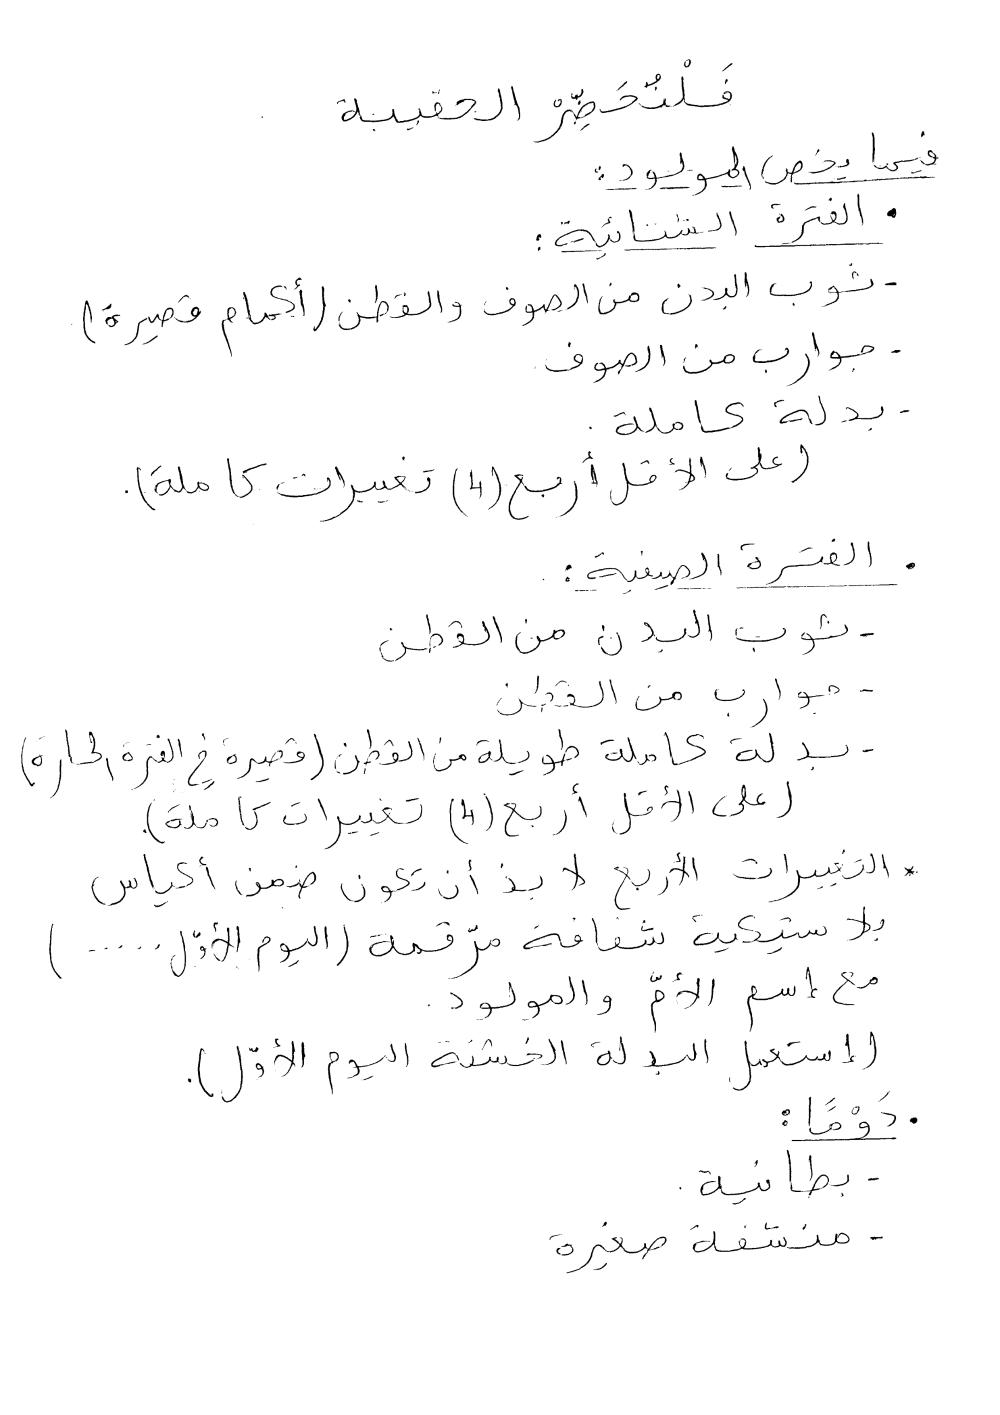 فَلْنُحَضِّرْ الحقيبة
فيما يخص المولود:
• الفترة الشتائية:
- ثوب البدن من الصوف والقطن (أكمام قصيرة)
- جوارب من الصوف.
- بدلة كاملة.
(على الأقل أربع (4) تغييرات كاملة).
• الفترة الصيفية:
- ثوب البدن من القطن
- جوارب من القطن
- بدلة كاملة طويلة من القطن (قصيرة في الفترة الحارة)
(على الأقل أربع (4) تغييرات كاملة).
* التغييرات الأربع لا بد أن تكون ضمن أكياس
بلاستيكية شفافة مرّقمة (اليوم الأوّل......)
مع إسم الأمّ والمولود.
(إستعمل البدلة الخشنة اليوم الأوّل).
• دَوْمًا:
- بطانية.
- منشفة صغيرة